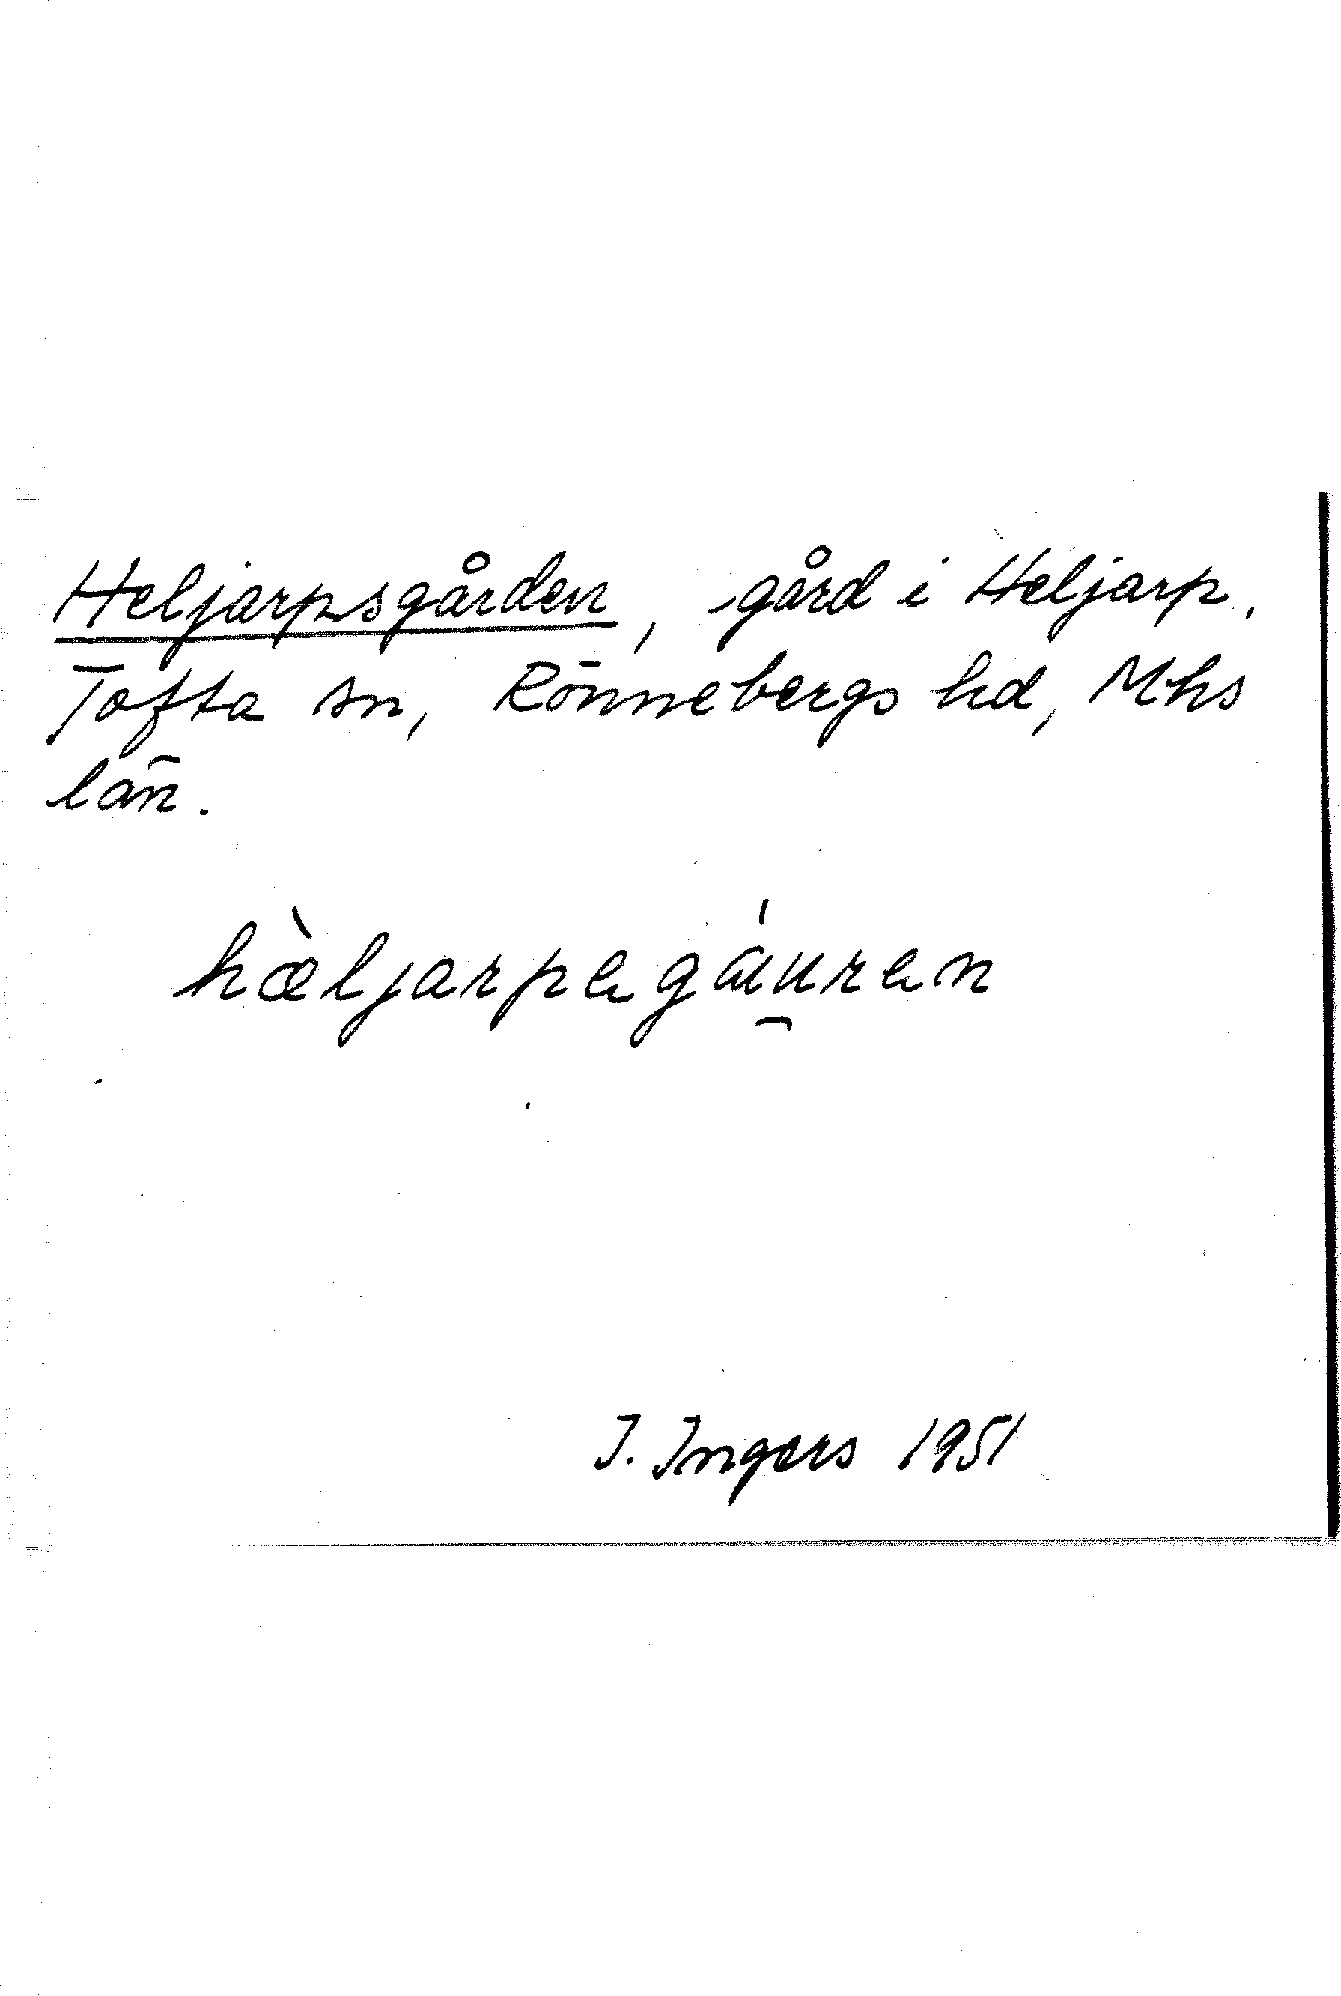 Heljarpsgården, gård i Heljarp,
Tofta sn, Rönnebergs hd, Mhs
län.
hæ̀ljarpagáu̯ran
I. Ingers 1951